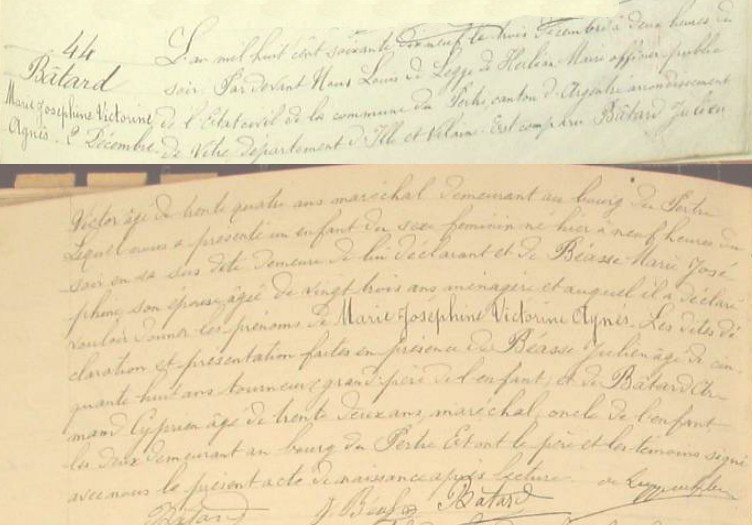 44
Bâtard
Marie Joséphine Victorine
Agnès. 2 Décembre
L'an mil huit cent soixante dix neuf le trois Décembre à deux heures du
soir. Par devant Nous Louis de Legge de Kerléan Maire officier public
de l'Etat civil de la commune du Pertre, canton d'Argentré arrondissement
de Vitré, département d'Ille et Vilaine. Est comparu Bâtard Julien
Victor âgé de trente quatre ans maréchal demeurant au bourg du Pertre
Lequel nous a présenté un enfant du sexe féminin né hier à neuf heures du
soir en sa sus dite demeure de lui déclarant et de Béasse Marie José
phine son épouse âgée de vingt trois ans ménagère et auquel il a déclaré
vouloir donner les prénoms de Marie Joséphine Victorine Agnès. Les dites dé
claration et présentation faites en présence de Béasse Julien âgé de cin-
quante huit ans tourneur, grand père de l'enfant, et de Bâtard Ar-
mand Cyprien âgé de trente deux ans, maréchal, oncle de l'enfant
les deux demeurant au bourg du Pertre Et ont le père et les témoins signé
avec nous le présent acte de naissance après lecture.
Bâtard J. Béasse Bâtard